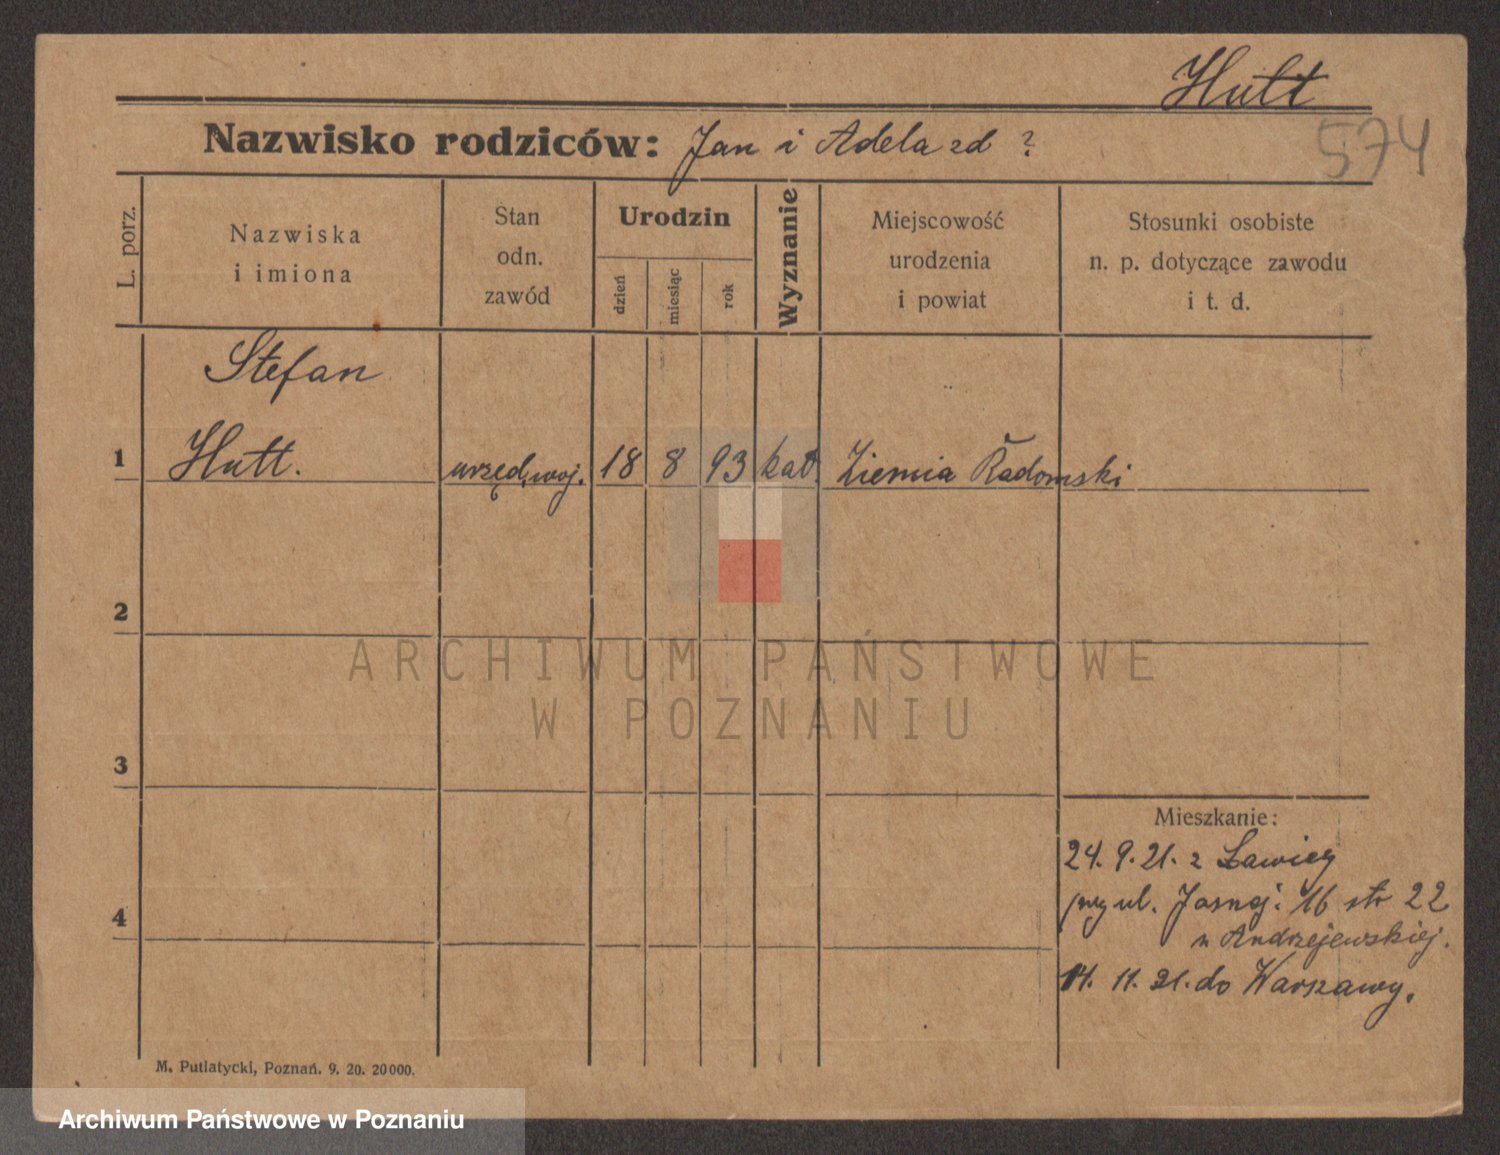 Hutt
574
Nazwisko rodziców: Jan i Adela zd ?
L. porz.
Nazwiska
i imiona
Stan
odn.
zawód
Urodzin
dzień
miesiąc
rok
Wyznanie
Miejscowość
urodzenia
i powiat
Stosunki osobiste
n. p. dotyczące zawodu
i t. d.
Stefan
1 Hutt. urzęd. woj. 18 8 93 kat. Ziemia Radomski
2
ARCHIWUM PAŃSTWOWE
W POZNANIU
3
Mieszkanie:
24. 9. 21. z Ławicy
przy ul. Jasnej. 16 str 22
4
u Andrzejewskiej.
14. 11. 21. do Warszawy.
M. Putiatycki, Poznań. 9. 20. 20000.
Archiwum Państwowe w Poznaniu